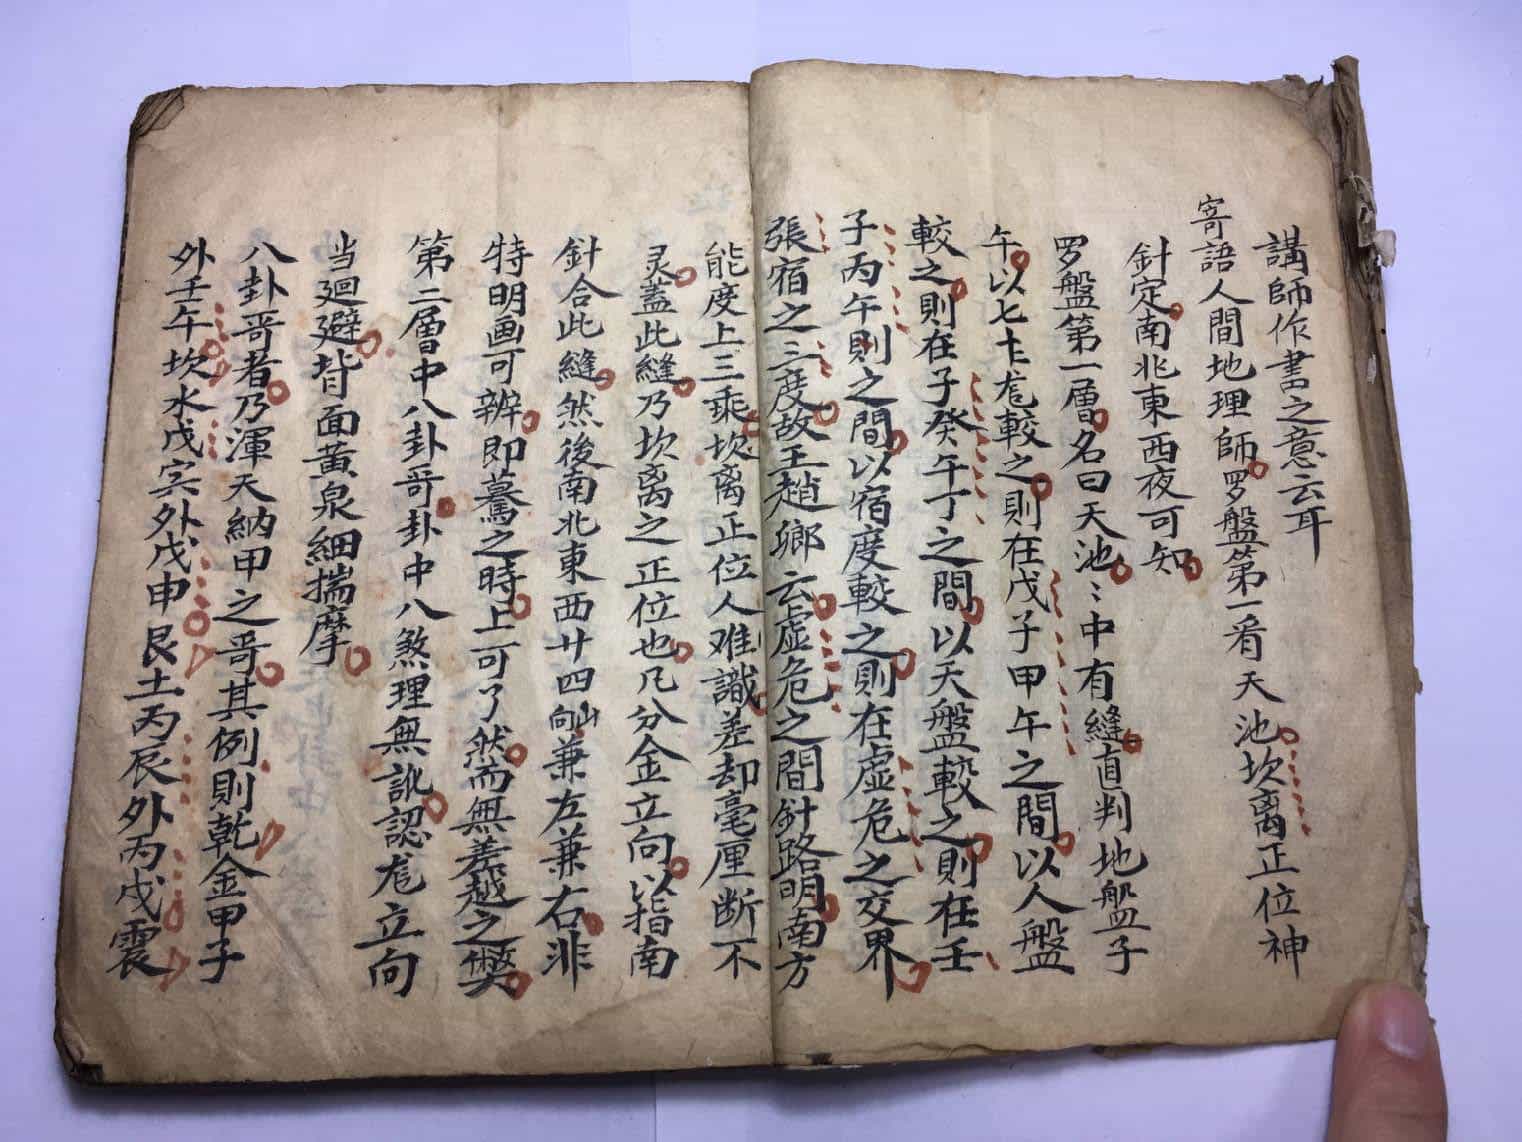 講師作書之意云耳
寄語人間地理師罗盤第一看天池坎离正位神
針定南北東西夜可知
罗盤第一層名曰天池〻中有縫直判地盤子
午以七十龙較之則在戊子甲午之間以人盤
較之則在子癸午丁之間以天盤較之則在壬
子丙午則之間以宿度較之則在虚危之交界
張宿之三度故王趙鄉云虚危之間針路明南方
能度上三乘坎离正位人难識差却毫厘断不
灵蓋此縫乃坎离之正位也凡分金立向以指南
針合此縫然後南北東西廿四山向兼左兼右非
特明画可辨即驀之時上可了然而無差越之獘
第二層中八卦哥卦中八煞理無訛認龙立向
当廻避背面黃泉細揣摩
八卦哥者乃渾天納甲之哥其例則乾金甲子
外壬午坎水戊寅外戊申艮土丙辰外丙戌震